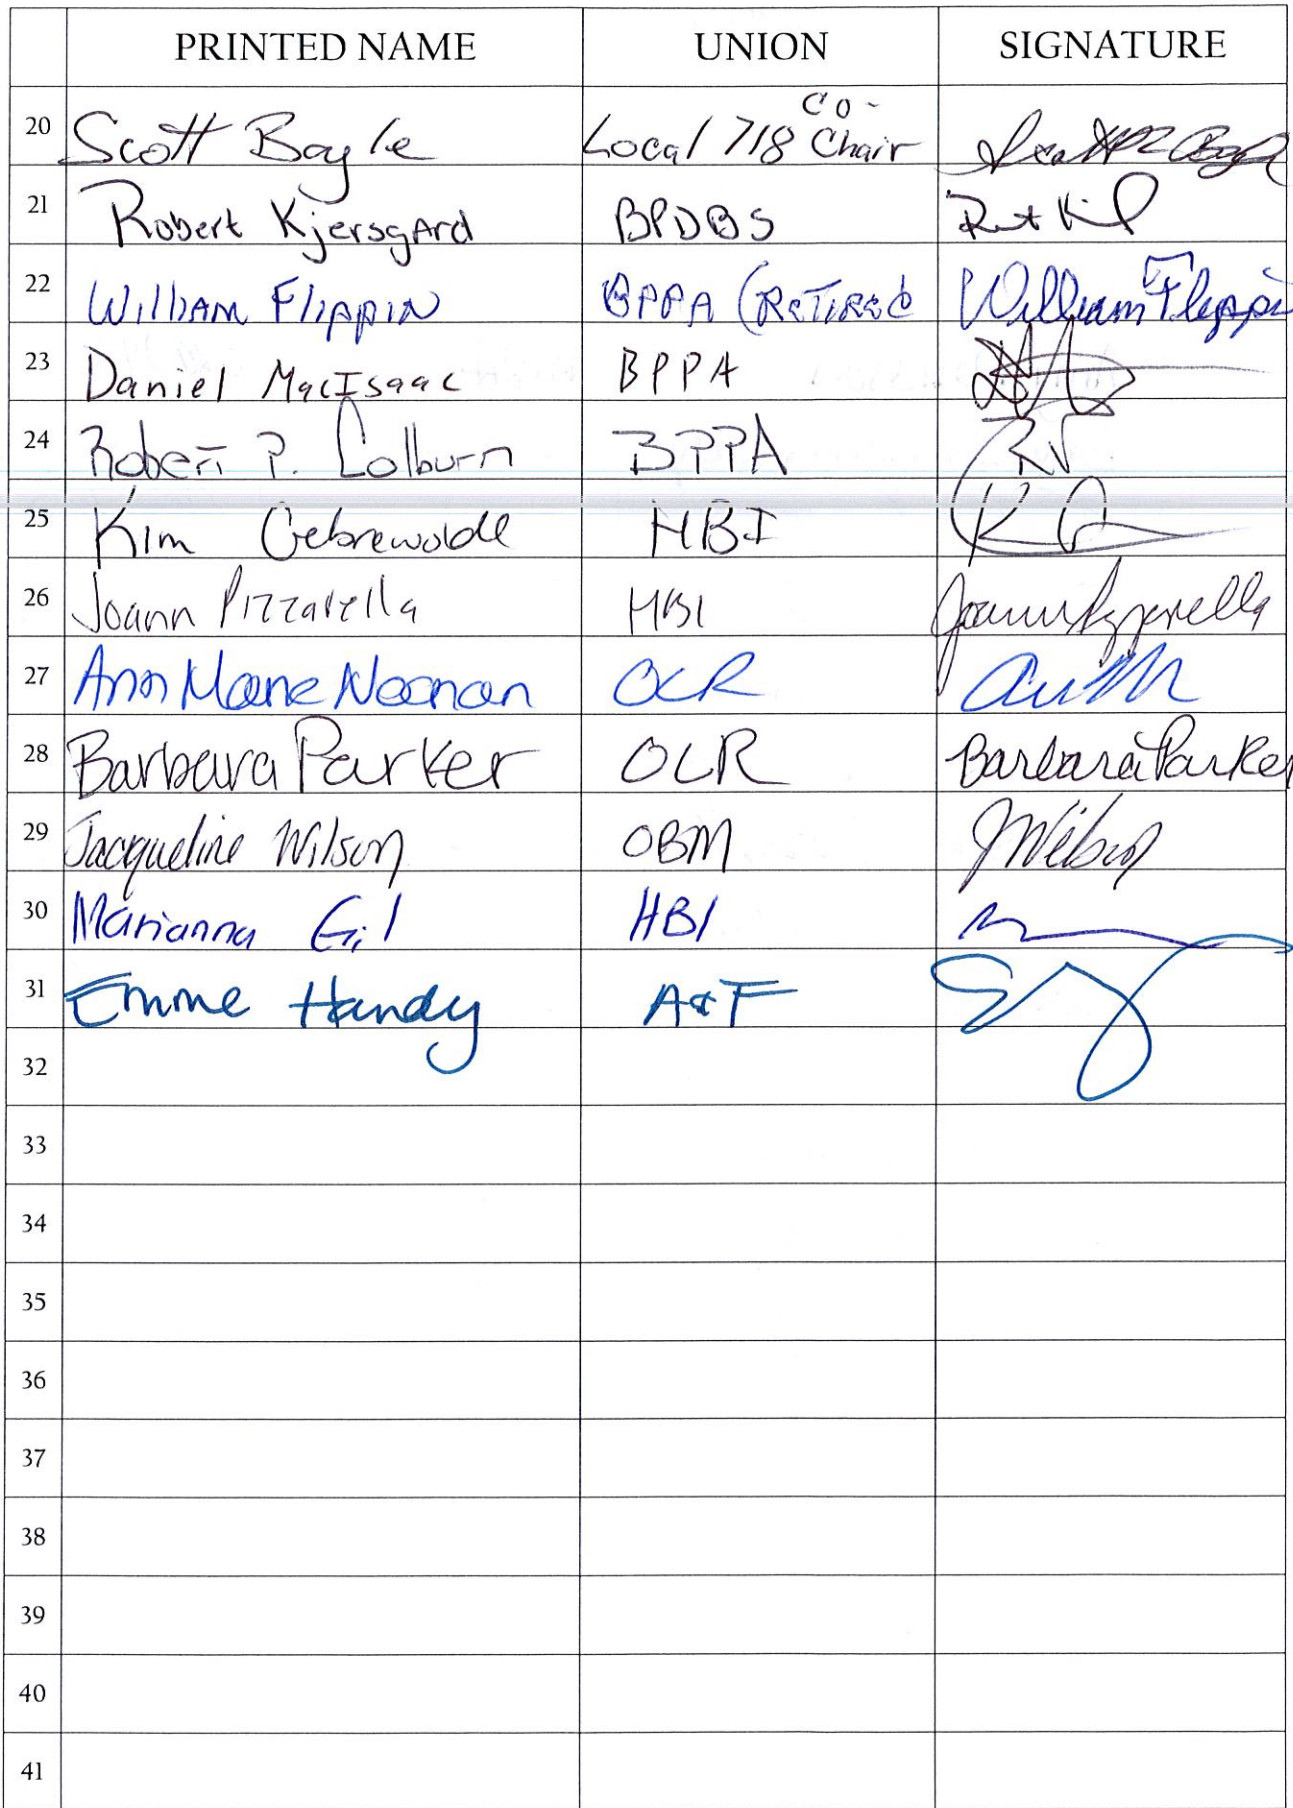 PRINTED NAME UNION SIGNATURE
20 Scott Boyle Local 718 Co-Chair
21 Robert Kjersgard BPDBS
22 William Flippin BPPA (Retired William Flippin
23 Daniel MacIsaac BPPA
24 Robert P. Colburn BPPA
25 Kim Gebrewolde HBI
26 Joann Pizzarella HBI Joann Pizzarella
27 Ann Marie Noonan OLR
28 Barbara Parker OLR Barbara Parker
29 Jacqueline Wilson OBM JWilson
30 Marianna Gil HBI
31 Emme Handy A&F
32
33
34
35
36
37
38
39
40
41